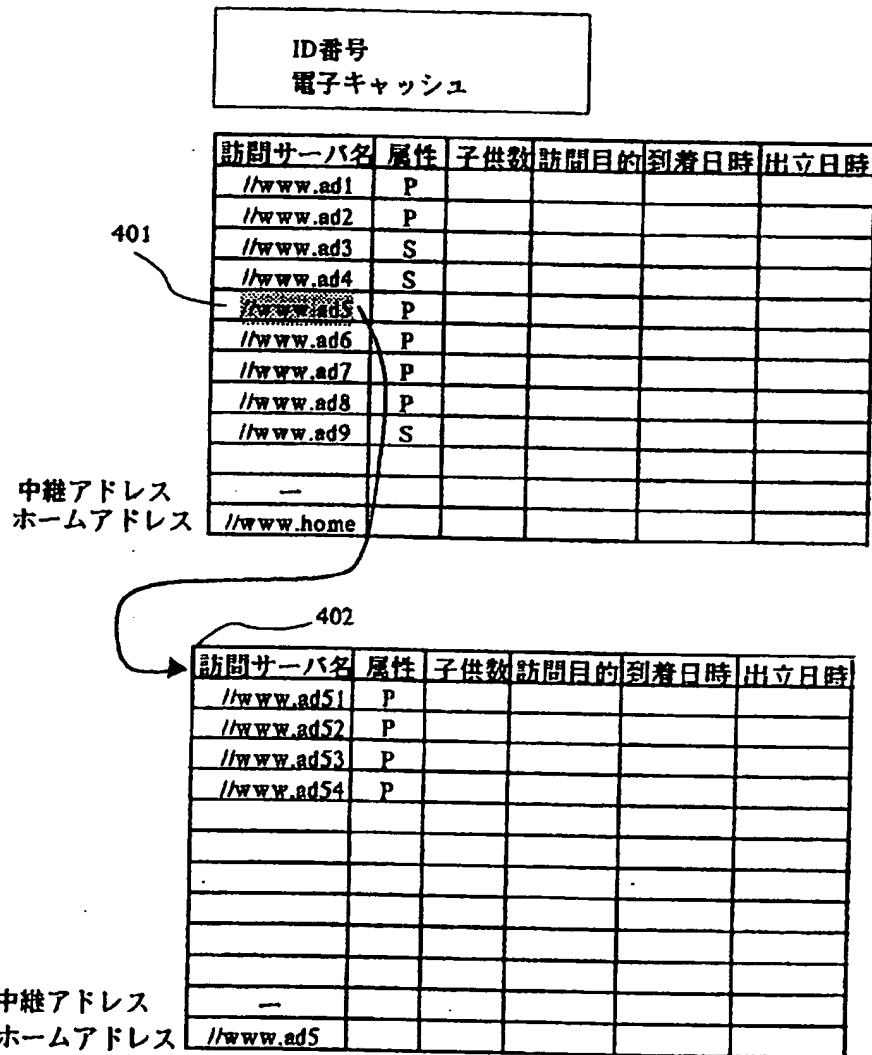 ID番号
電子キャッシュ
訪問サーバ名 属性 子供数 訪問目的 到着日時 出立日時
//www.ad1 P
//www.ad2 P
//www.ad3 S
401
//www.ad4 S
//www.ad5 P
//www.ad6 P
//www.ad7 P
//www.ad8 P
//www.ad9 S
中継アドレス —
ホームアドレス //www.home
402
訪問サーバ名 属性 子供数 訪問目的 到着日時 出立日時
//www.ad51 P
//www.ad52 P
//www.ad53 P
//www.ad54 P
中継アドレス —
ホームアドレス //www.ad5